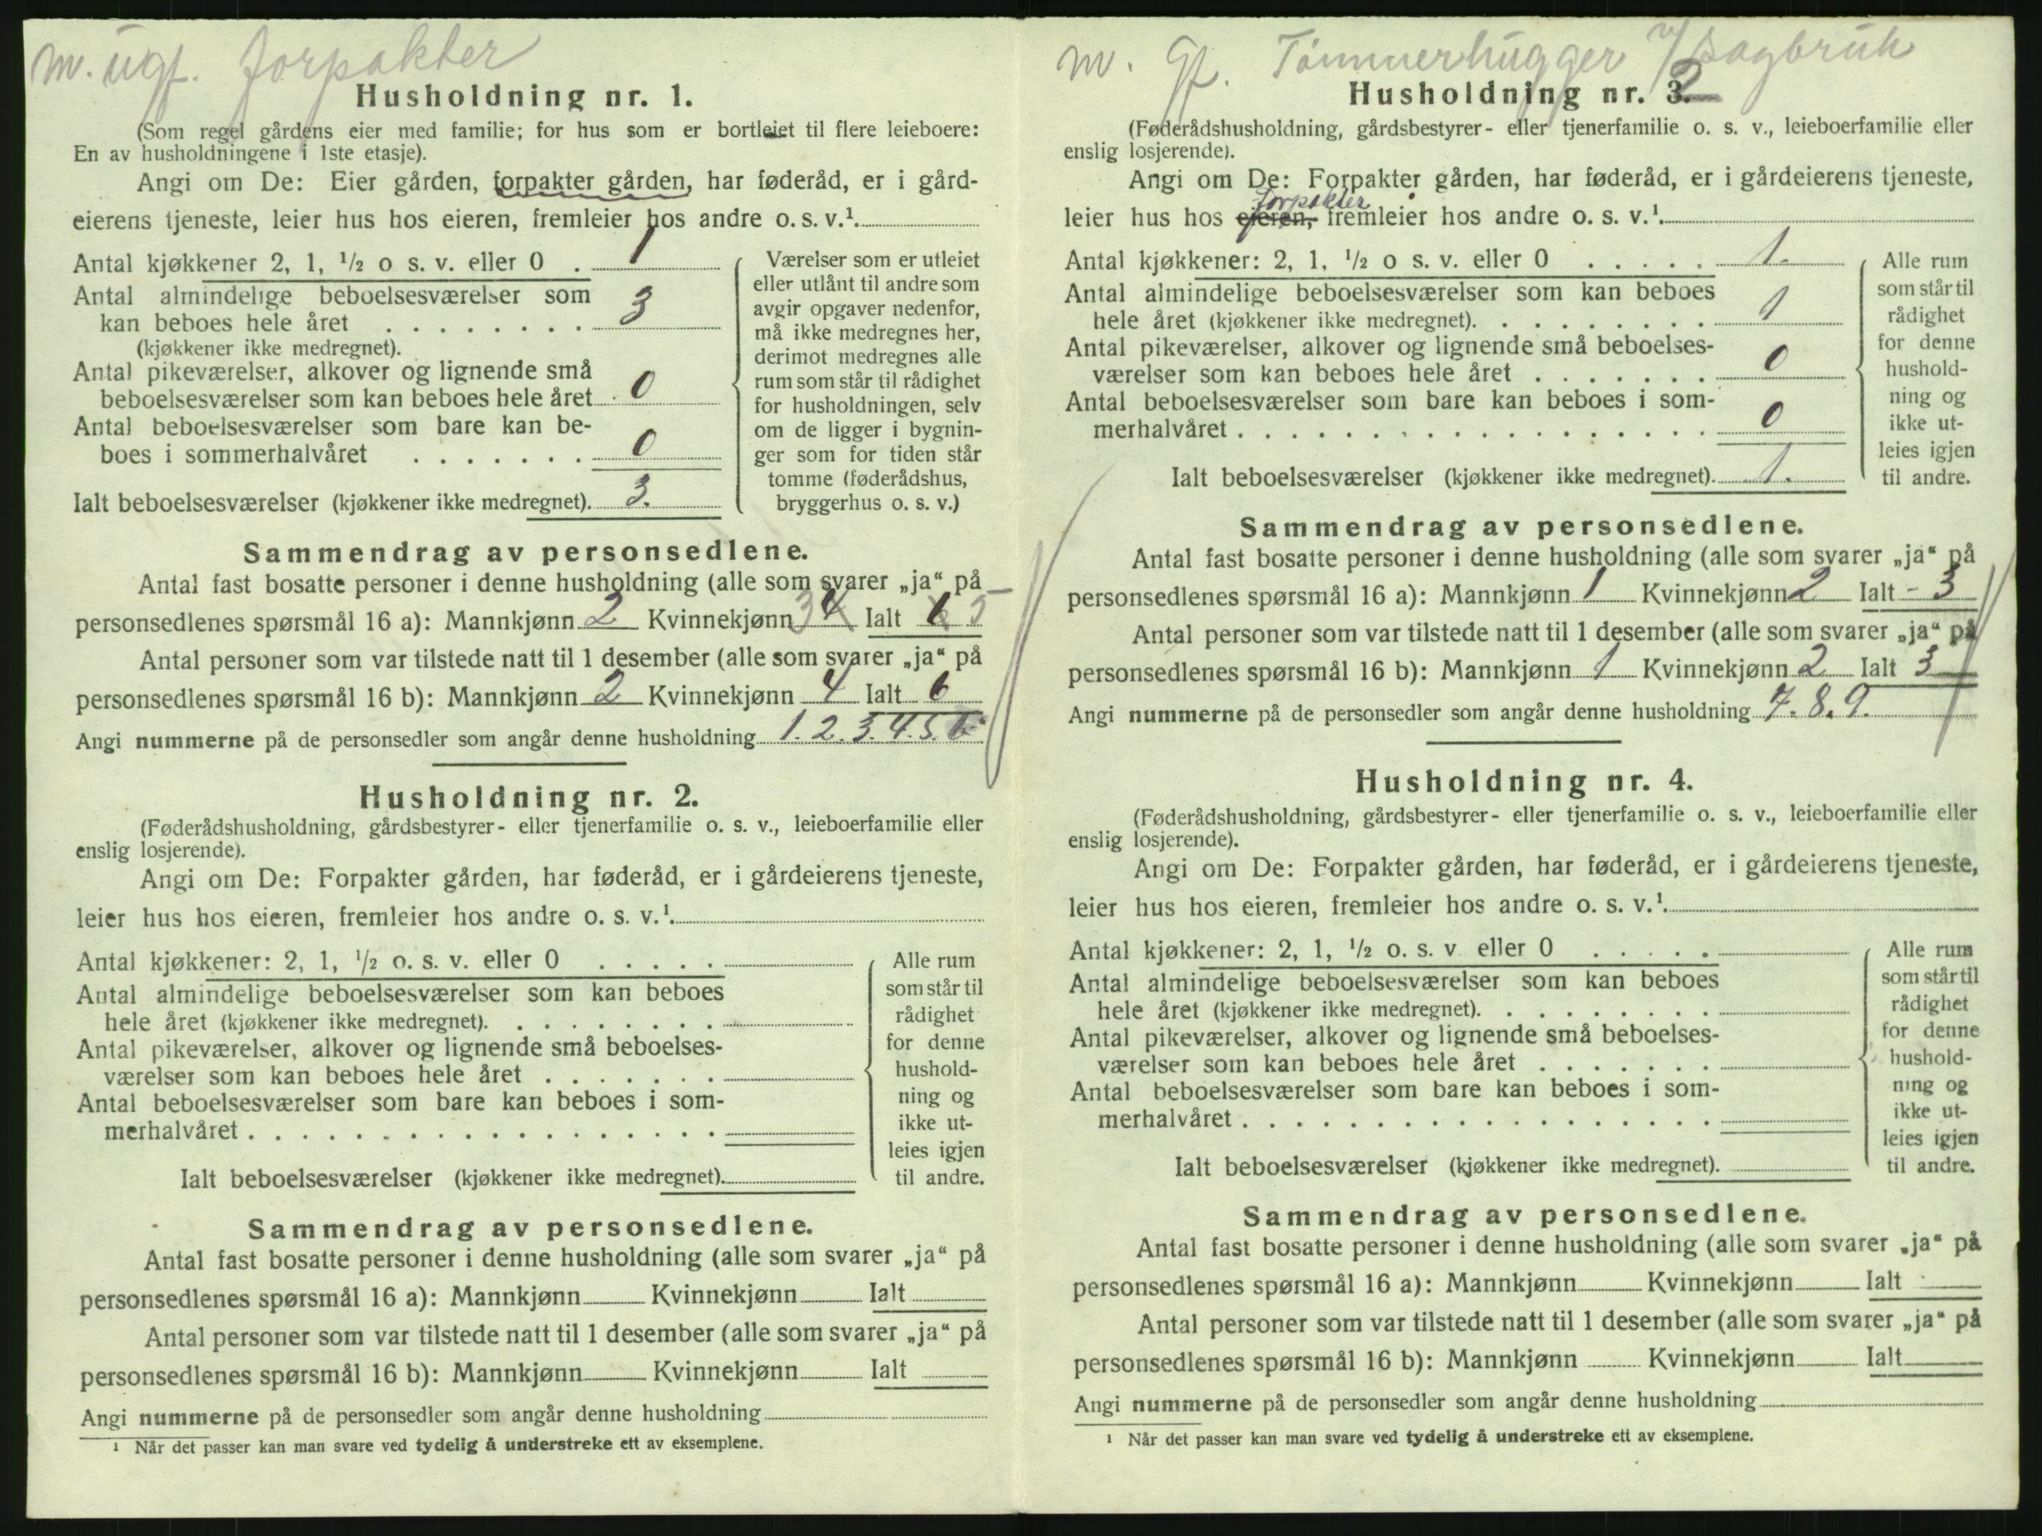 m. ugf. forpakter
Husholdning nr. 1.
(Som regel gårdens eier med familie; for hus som er bortleiet til flere leieboere:
En av husholdningene i 1ste etasje).
Angi om De: Eier gården, forpakter gården, har føderåd, er i gård-
eierens tjeneste, leier hus hos eieren, fremleier hos andre o. s. v.¹.
Antal kjøkkener 2, 1, ½ o s. v. eller 0 . 1
Antal almindelige beboelsesværelser som
kan beboes hele året . . . . . . . . 3
(kjøkkener ikke medregnet).
Antal pikeværelser, alkover og lignende små
beboelsesværelser som kan beboes hele året 0
Antal beboelsesværelser som bare kan be-
boes i sommerhalvåret . . . . . . . 0
Ialt beboelsesværelser (kjøkkener ikke medregnet). 3.
Værelser som er utleiet
eller utlånt til andre som
avgir opgaver nedenfor,
må ikke medregnes her,
derimot medregnes alle
rum som står til rådighet
for husholdningen, selv
om de ligger i bygnin-
ger som for tiden står
tomme (føderådshus,
bryggerhus o. s. v.)
Sammendrag av personsedlene.
Antal fast bosatte personer i denne husholdning (alle som svarer „ja“ på
personsedlenes spørsmål 16 a): Mannkjønn 2 Kvinnekjønn 3 4 Ialt 6 5
Antal personer som var tilstede natt til 1 desember (alle som svarer „ja“ på
personsedlenes spørsmål 16 b): Mannkjønn 2 Kvinnekjønn 4 Ialt 6
Angi nummerne på de personsedler som angår denne husholdning 1. 2. 3. 4. 5. 6.
Husholdning nr. 2.
(Føderådshusholdning, gårdsbestyrer- eller tjenerfamilie o. s. v., leieboerfamilie eller
enslig losjerende).
Angi om De: Forpakter gården, har føderåd, er i gårdeierens tjeneste,
leier hus hos eieren, fremleier hos andre o. s. v.¹.
Antal kjøkkener: 2, 1, ½ o. s. v. eller 0 . . . . .
Antal almindelige beboelsesværelser som kan beboes
hele året (kjøkkener ikke medregnet). . . . . . . . .
Antal pikeværelser, alkover og lignende små beboelses-
værelser som kan beboes hele året . . . . . . .
Antal beboelsesværelser som bare kan beboes i som-
merhalvåret . . . . . . . . . . . . . . . . . .
Ialt beboelsesværelser (kjøkkener ikke medregnet).
Alle rum
som står til
rådighet
for denne
hushold-
ning og
ikke ut-
leies igjen
til andre.
Sammendrag av personsedlene.
Antal fast bosatte personer i denne husholdning (alle som svarer „ja“ på
personsedlenes spørsmål 16 a): Mannkjønn Kvinnekjønn Ialt
Antal personer som var tilstede natt til 1 desember (alle som svarer „ja“ på
personsedlenes spørsmål 16 b): Mannkjønn Kvinnekjønn Ialt
Angi nummerne på de personsedler som angår denne husholdning
¹ Når det passer kan man svare ved tydelig å understreke ett av eksemplene.
m. gf. Tømmerhugger v/ sagbruk
Husholdning nr. 3. 2
(Føderådshusholdning, gårdsbestyrer- eller tjenerfamilie o. s. v., leieboerfamilie eller
enslig losjerende).
Angi om De: Forpakter gården, har føderåd, er i gårdeierens tjeneste,
forpakter
leier hus hos eieren, fremleier hos andre o. s. v.¹.
Antal kjøkkener: 2, 1, ½ o s. v. eller 0 . . . . . 1.
Antal almindelige beboelsesværelser som kan beboes
hele året (kjøkkener ikke medregnet). . . . . . . . . 1
Antal pikeværelser, alkover og lignende små beboelses-
værelser som kan beboes hele året . . . . . . . 0
Antal beboelsesværelser som bare kan beboes i som-
merhalvåret . . . . . . . . . . . . . . . . . . 0
Ialt beboelsesværelser (kjøkkener ikke medregnet). 1.
Alle rum
som står til
rådighet
for denne
hushold-
ning og
ikke ut-
leies igjen
til andre.
Sammendrag av personsedlene.
Antal fast bosatte personer i denne husholdning (alle som svarer „ja“ på
personsedlenes spørsmål 16 a): Mannkjønn 1 Kvinnekjønn 2 Ialt - 3
Antal personer som var tilstede natt til 1 desember (alle som svarer „ja“ på
personsedlenes spørsmål 16 b): Mannkjønn 1 Kvinnekjønn 2 Ialt 3
Angi nummerne på de personsedler som angår denne husholdning 7. 8. 9.
Husholdning nr. 4.
(Føderådshusholdning, gårdsbestyrer- eller tjenerfamilie o. s. v., leieboerfamilie eller
enslig losjerende).
Angi om De: Forpakter gården, har føderåd, er i gårdeierens tjeneste,
leier hus hos eieren, fremleier hos andre o. s. v.¹.
Antal kjøkkener: 2, 1, ½ o. s. v eller 0 . . . . .
Antal almindelige beboelsesværelser som kan beboes
hele året (kjøkkener ikke medregnet). . . . . . . . .
Antal pikeværelser, alkover og lignende små beboelses-
værelser som kan beboes hele året . . . . . . .
Antal beboelsesværelser som bare kan beboes i som-
merhalvåret . . . . . . . . . . . . . . . . . .
Ialt beboelsesværelser (kjøkkener ikke medregnet).
Alle rum
som står til
rådighet
for denne
hushold-
ning og
ikke ut-
leies igjen
til andre.
Sammendrag av personsedlene.
Antal fast bosatte personer i denne husholdning (alle som svarer „ja“ på
personsedlenes spørsmål 16 a): Mannkjønn Kvinnekjønn Ialt
Antal personer som var tilstede natt til 1 desember (alle som svarer „ja“ på
personsedlenes spørsmål 16 b): Mannkjønn Kvinnekjønn Ialt
Angi nummerne på de personsedler som angår denne husholdning
¹ Når det passer kan man svare ved tydelig å understreke ett av eksemplene.